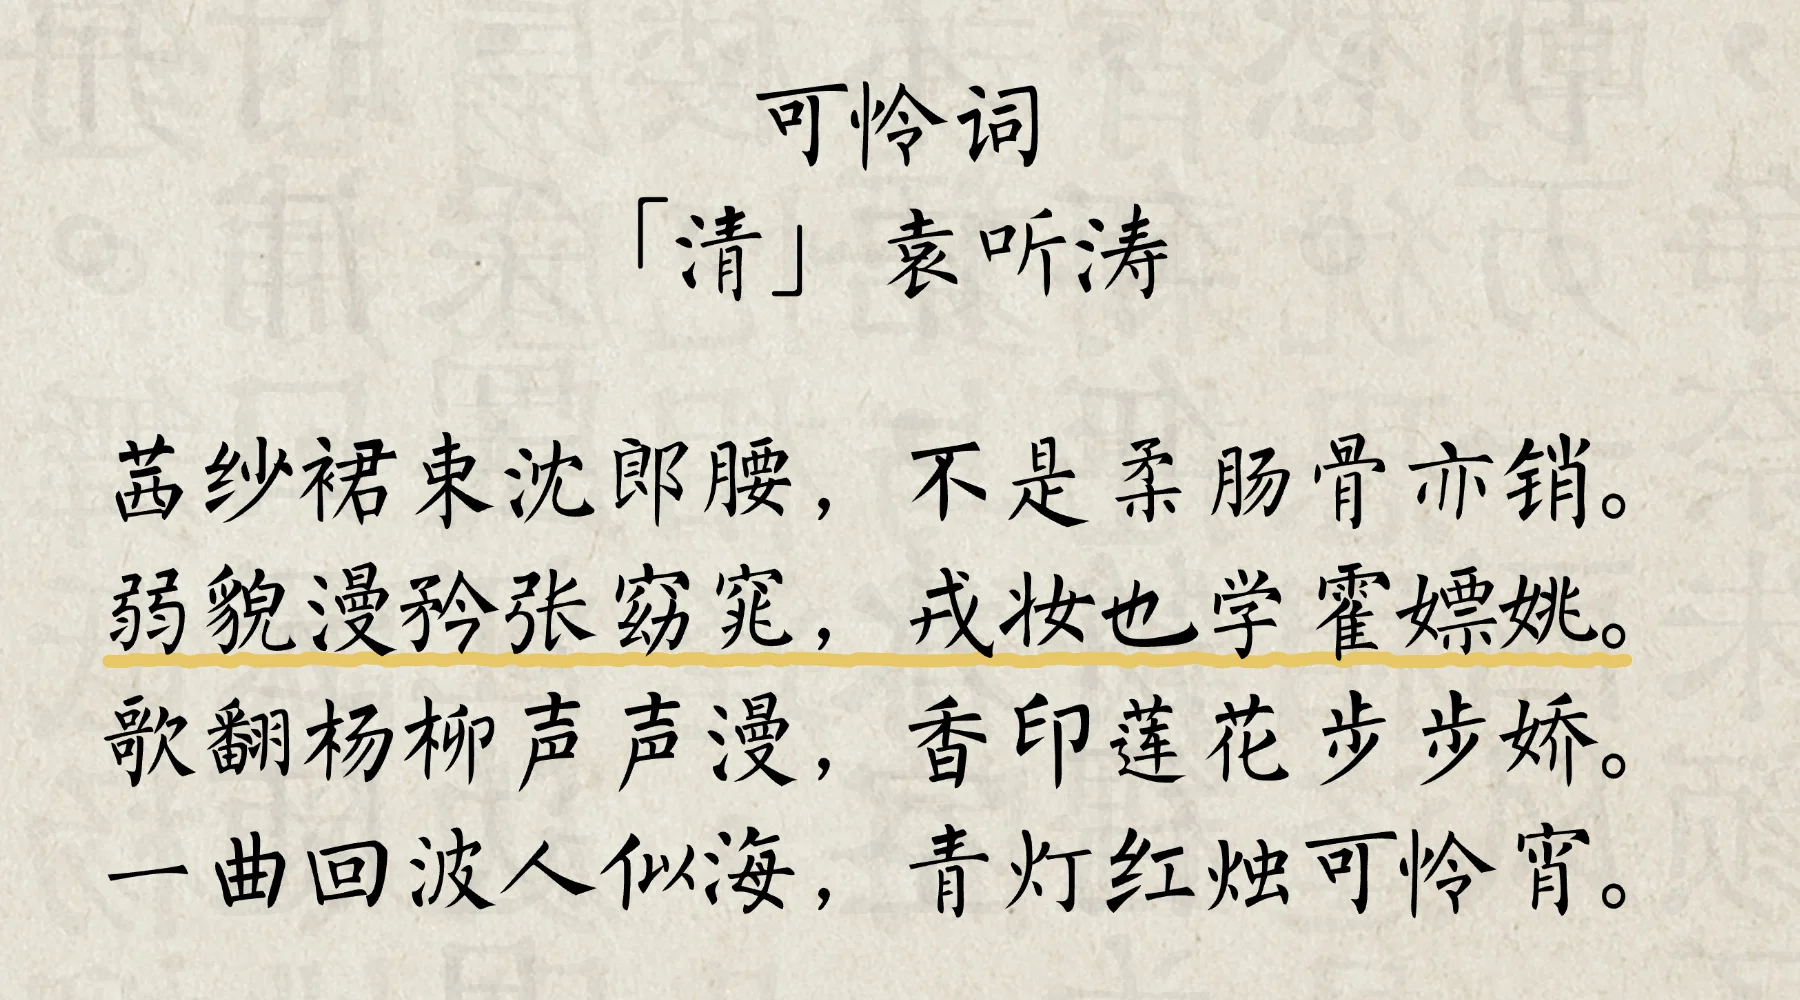 可怜词
「清」 袁听涛
茜纱裙束沈郎腰，不是柔肠骨亦销。
弱貌漫矜张窈窕，戎妆也学霍嫖姚。
歌翻杨柳声声漫，香印莲花步步娇。
一曲回波人似海，青灯红烛可怜宵。